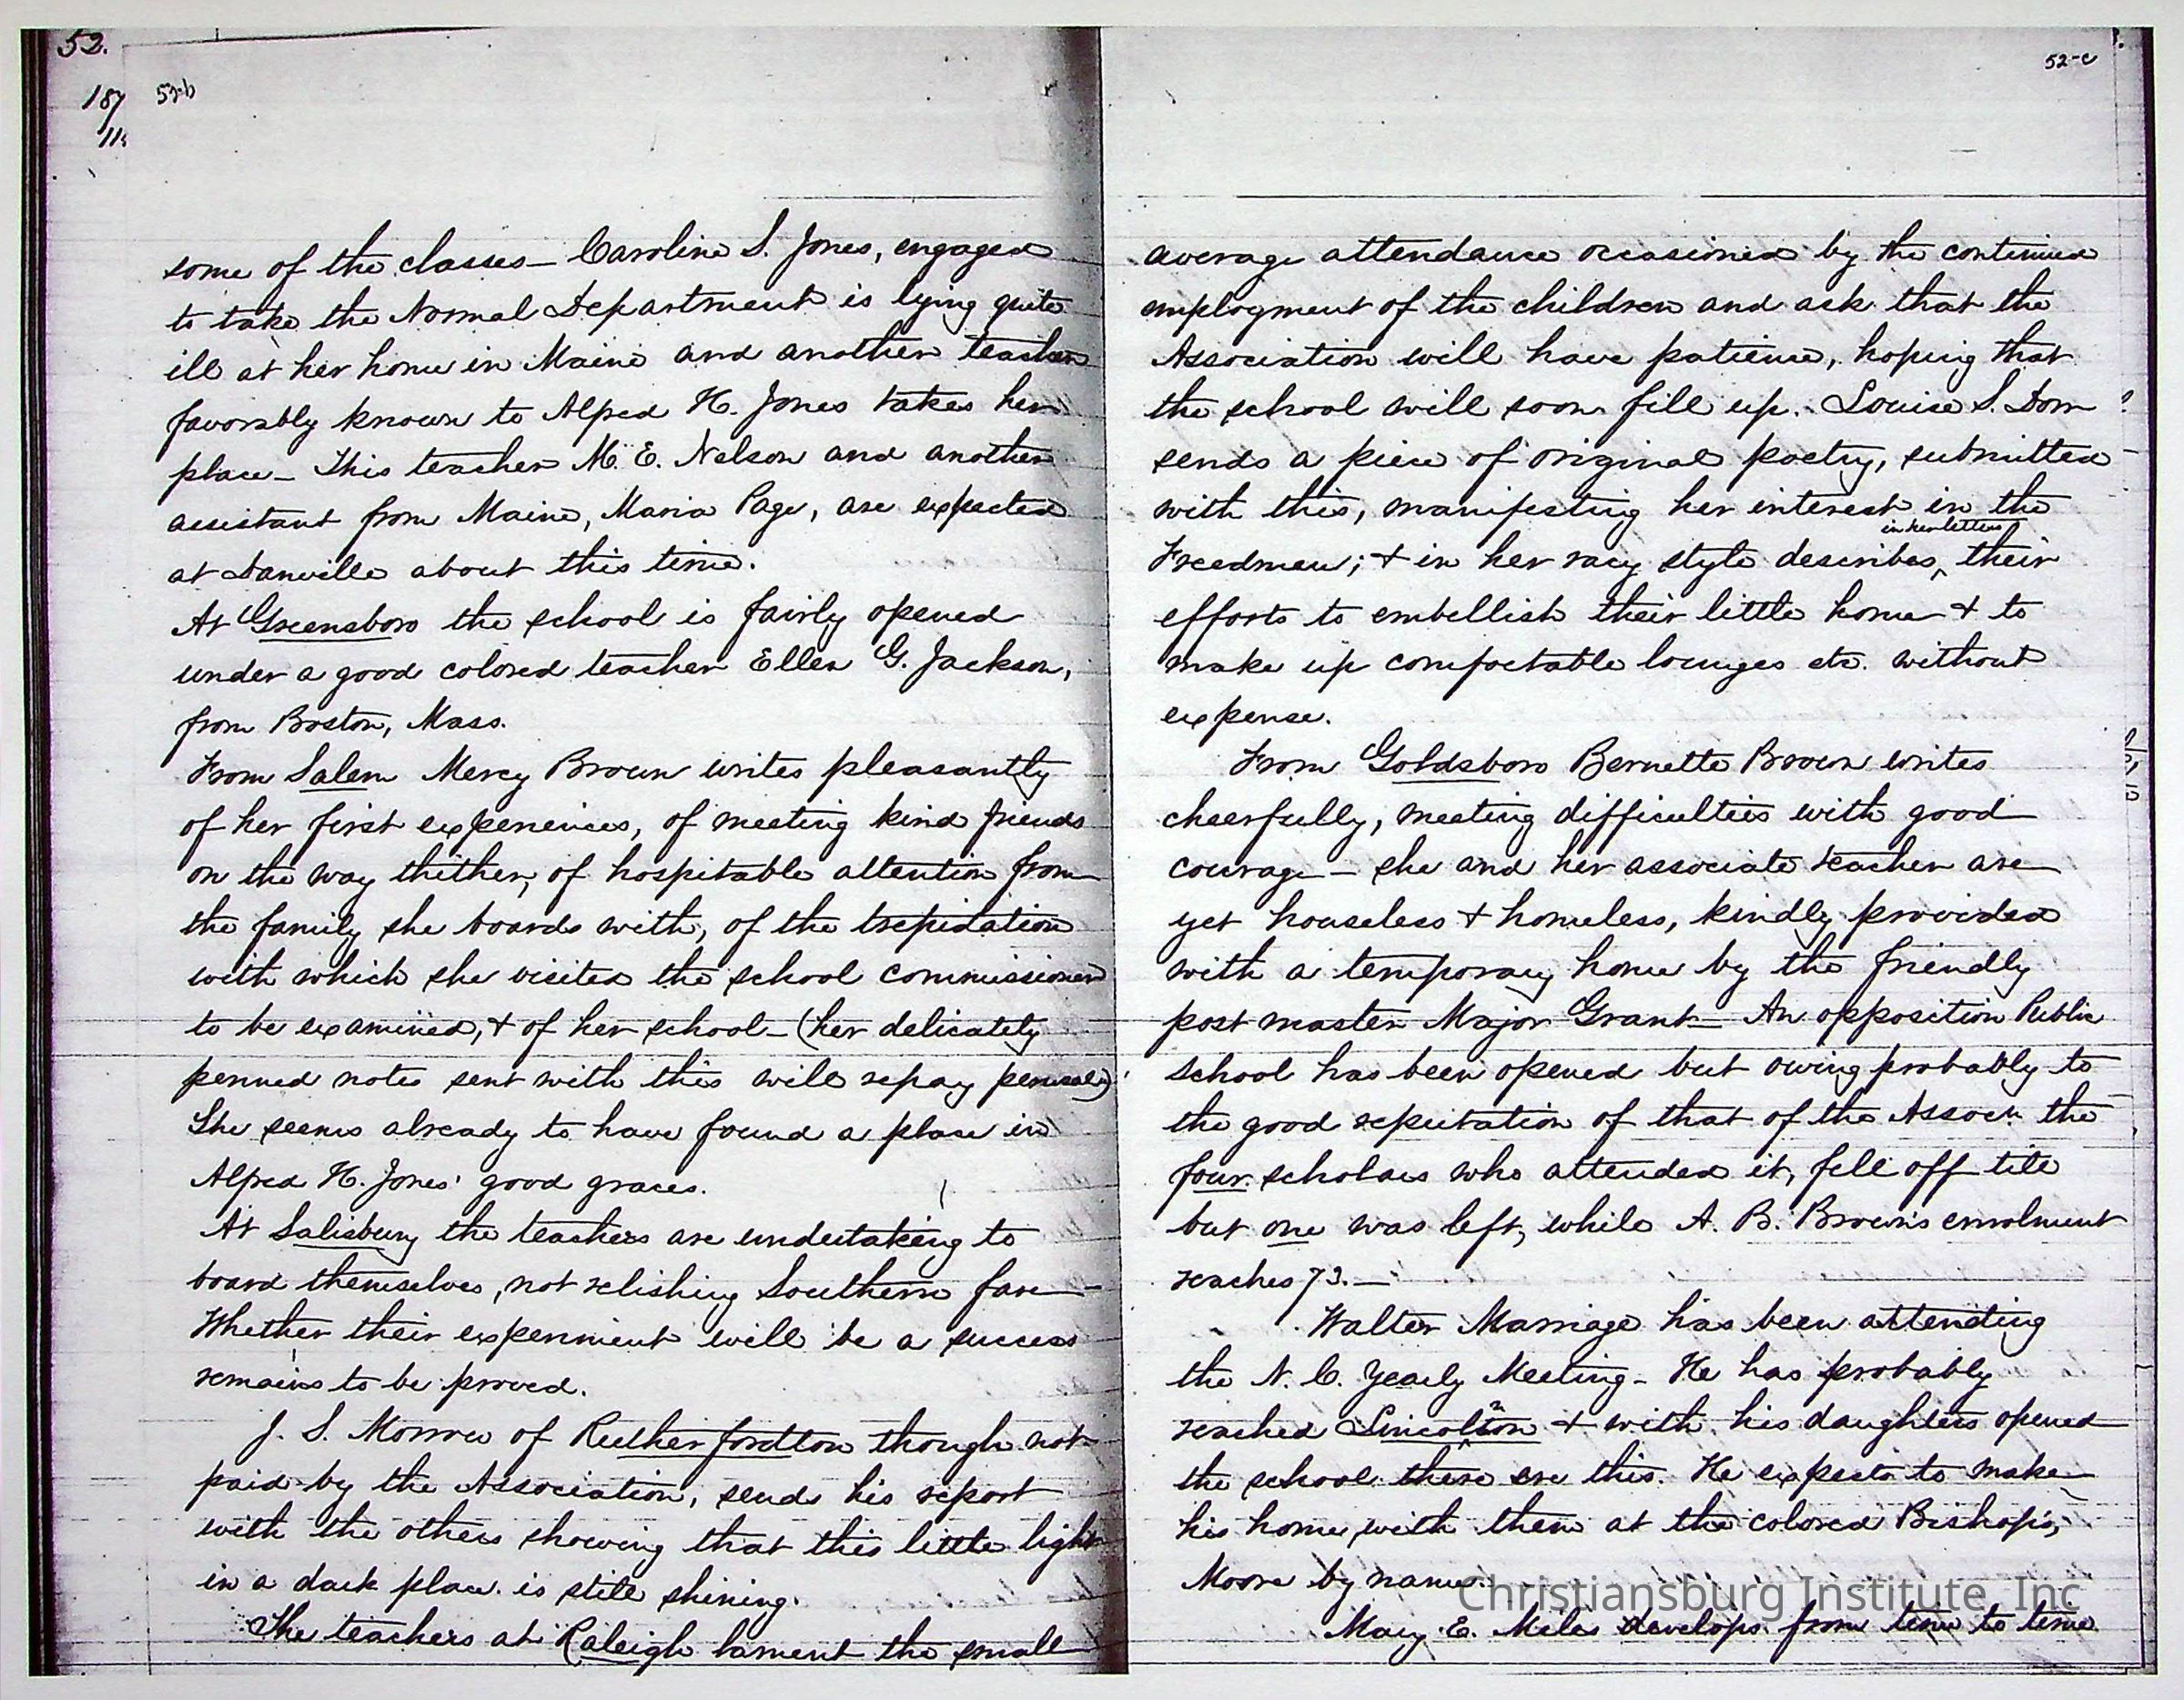 52.
187
11
52-b
some of the classes – Caroline S. Jones, engaged
to take the Normal Department is lying quite
ill at her home in Maine and another teacher
favorably known to Alfred H. Jones takes her
place – This teacher M. E. Nelson and another
assistant from Maine, Maria Page, are expected
at Danville about this time.
At Greensboro the school is fairly opened
under a good colored teacher Ellen G. Jackson,
from Boston, Mass.
From Salem Mercy Brown writes pleasantly
of her first experiences, of meeting kind friends
on the way thither, of hospitable attention from
the family she boards with, of the trepidation
with which she visited the school commissioner
to be examined, & of her school – (her delicately
penned notes sent with this will repay perusal)
She seems already to have found a place in
Alfred H. Jones' good graces.
At Salisbury the teachers are undertaking to
board themselves, not relishing Southern fare –
Whether their experiment will be a success
remains to be proved.
J. S. Morrow of Rutherfordton though not
paid by the Association, sends his report
with the others showing that this little light
in a dark place is still shining.
The teachers at Raleigh lament the small
52-c
average attendance occasioned by the continued
employment of the children and ask that the
Association will have patience, hoping that
the school will soon fill up. Louise S. Dorr
sends a piece of original poetry, submitted
with this, manifesting her interest in the
in her letters
Freedmen; & in her racy style describes, their
efforts to embellish their little home & to
make up comfortable lounges etc. without
expense.
From Goldsboro Bernette Brown writes
cheerfully, meeting difficulties with good
courage – she and her associate teacher are
yet houseless & homeless, kindly provided
with a temporary home by the friendly
post master Major Grant – An opposition Public
school has been opened but owing probably to
the good reputation of that of the Assocn. the
four scholars who attended it, fell off till
but one was left, while A. B. Brown's enrolment
reaches 73. –
Walter Marriage has been attending
the N. C. Yearly Meeting – He has probably
reached Lincolnton & with his daughters opened
the school there ere this. He expects to make
his home with them at the colored Bishop's,
Moore by name.
Mary E. Miles develops from time to time
Christiansburg Institute, Inc